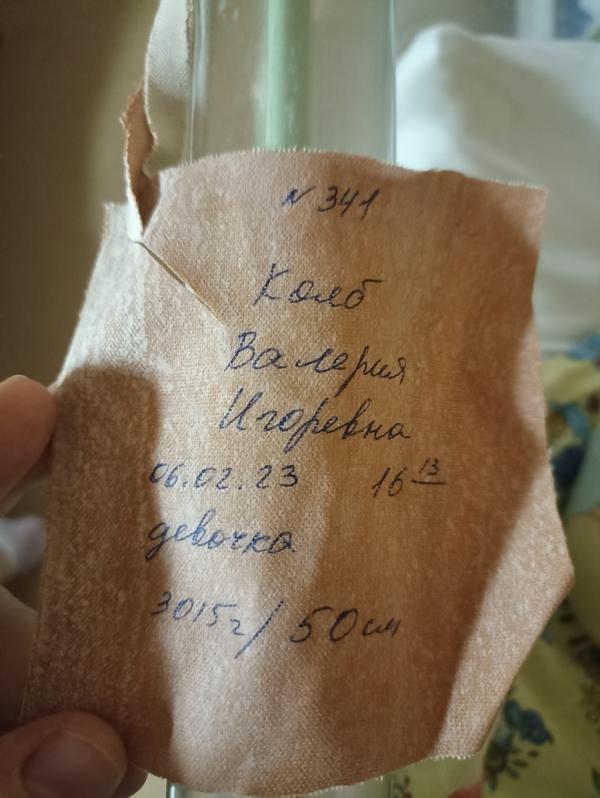 N 341
Колб
Валерия
Игоревна
06.02.23 16 13
девочка
3015г/50см